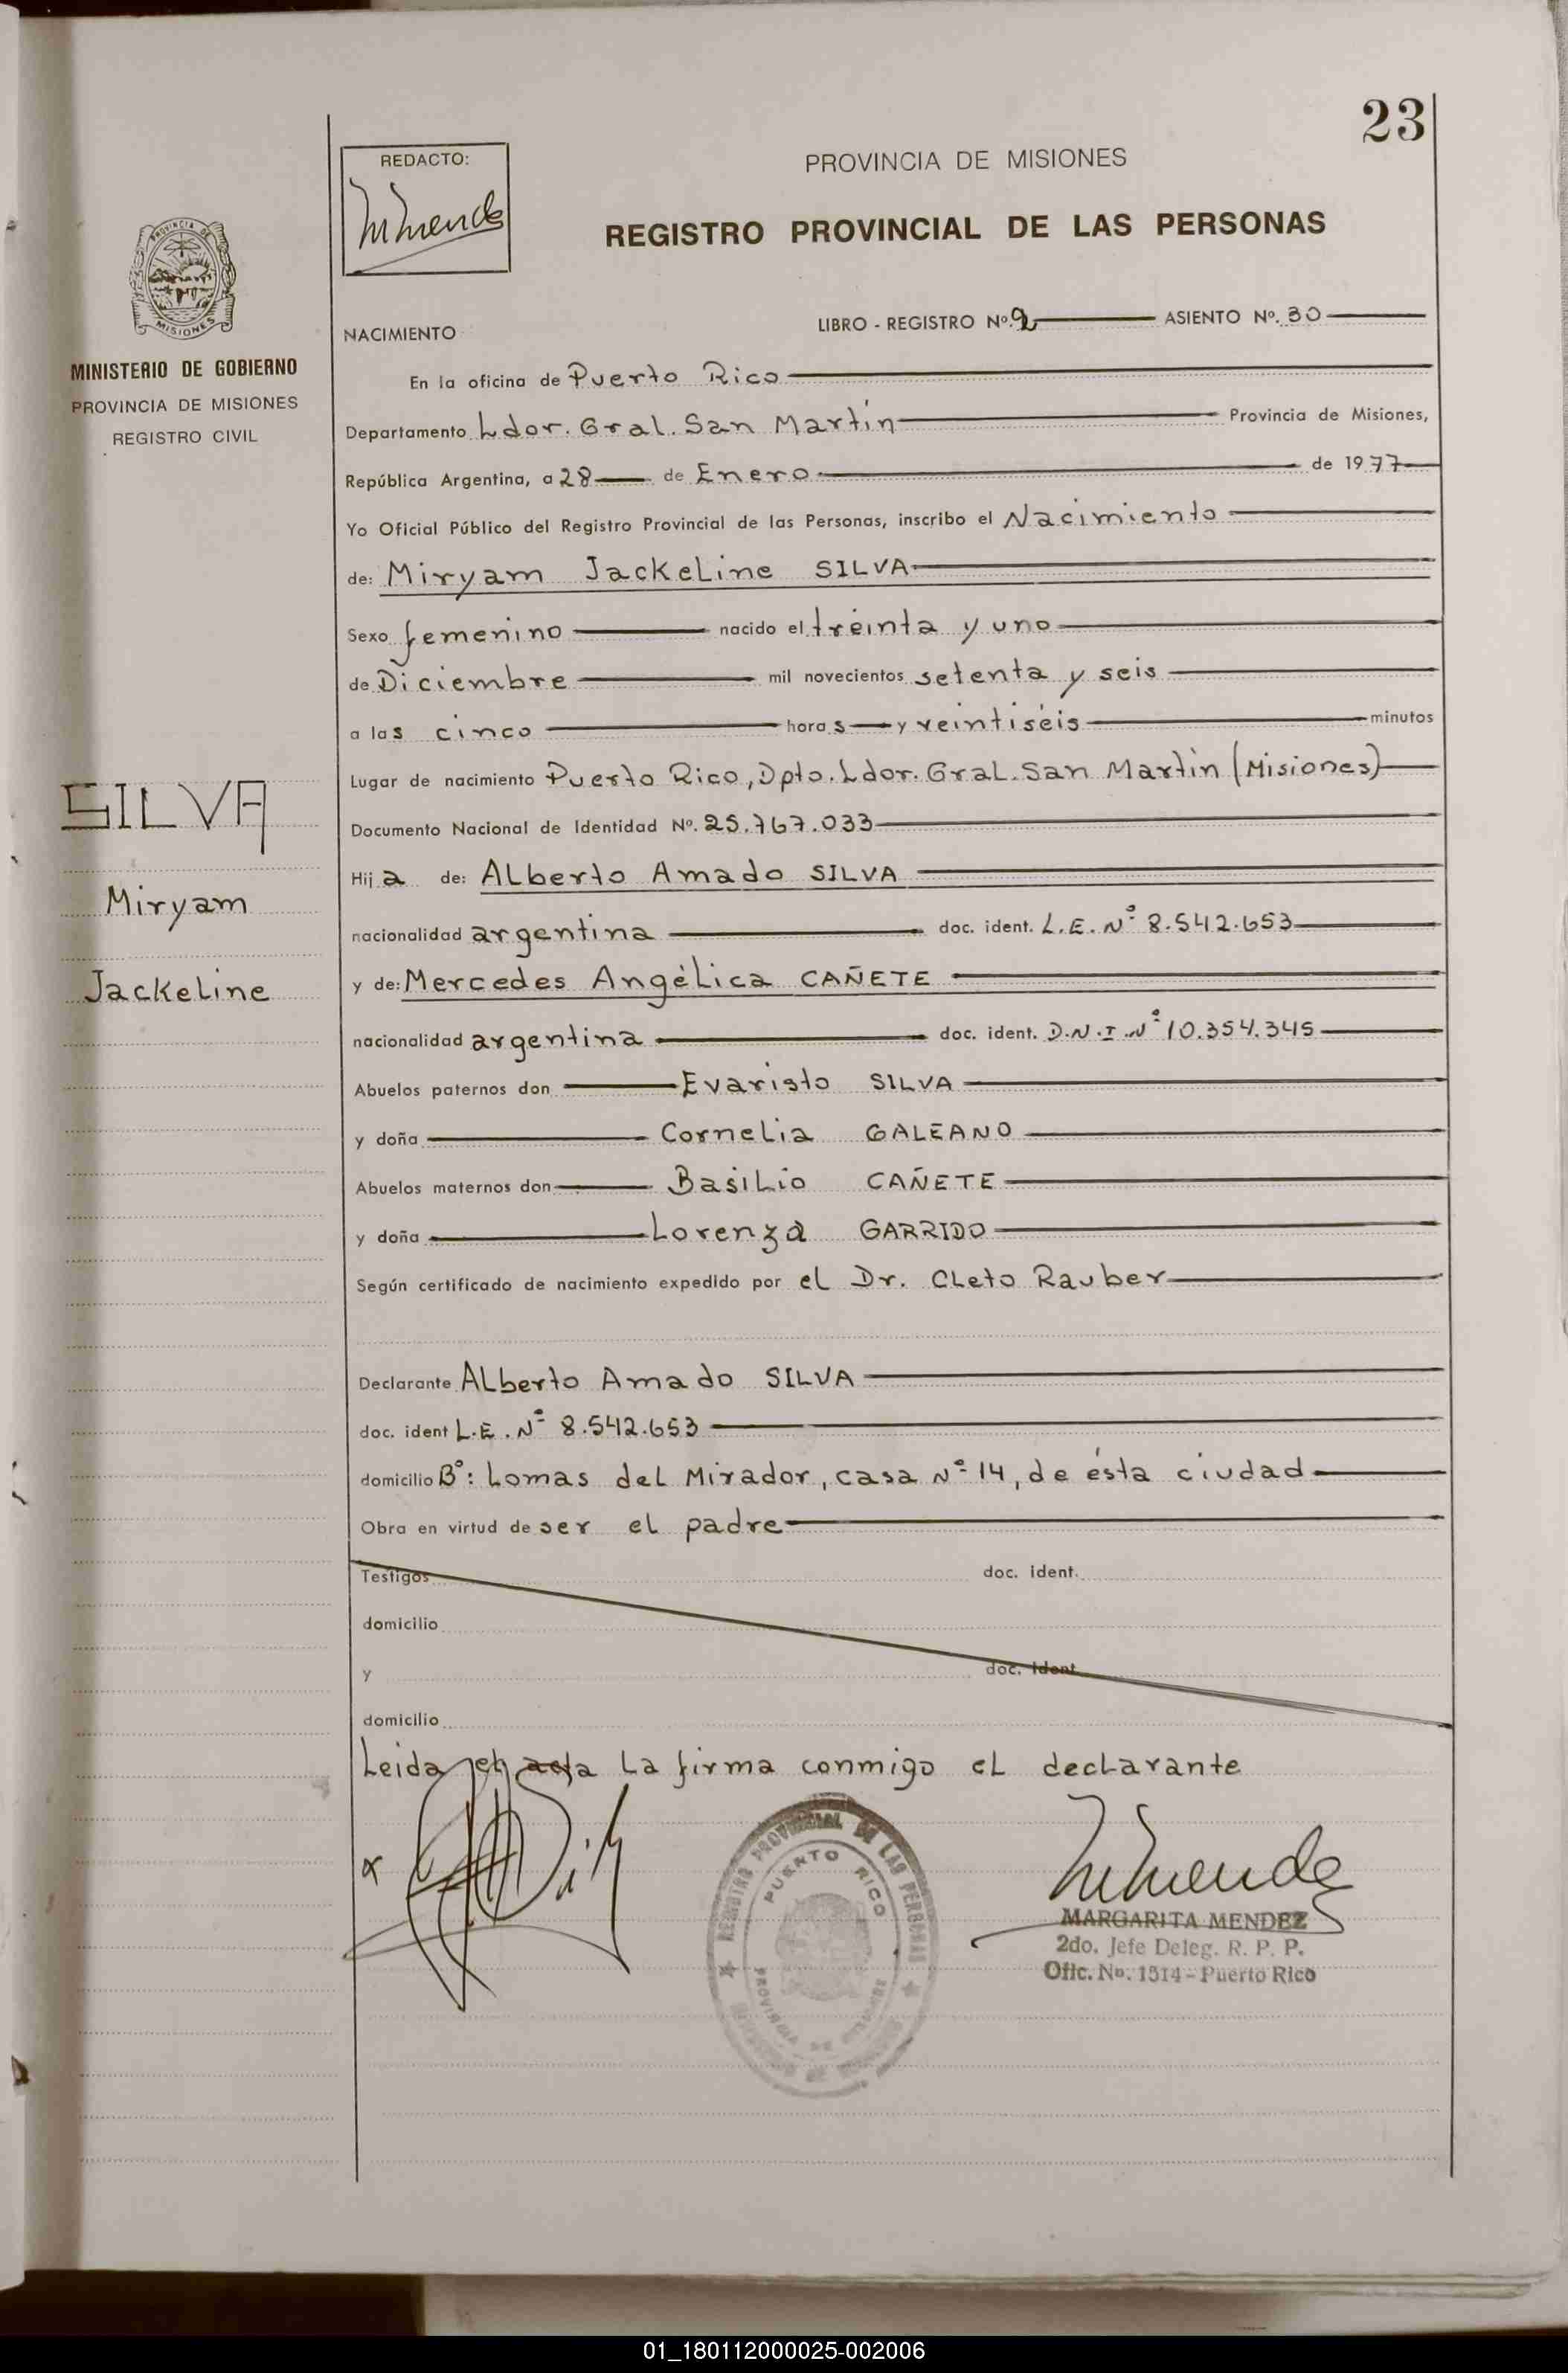 23
REDACTO:
PROVINCIA DE MISIONES
REGISTRO PROVINCIAL DE LAS PERSONAS
PROVINCIA DE
MISIONES
MINISTERIO DE GOBIERNO
PROVINCIA DE MISIONES
REGISTRO CIVIL
SILVA
Miryam
Jackeline
NACIMIENTO LIBRO - REGISTRO Nº. 2 ASIENTO Nº. 30
En la oficina de Puerto Rico
Departamento Ldor. Gral. San Martín Provincia de Misiones,
República Argentina, a 28 de Enero de 1977
Yo Oficial Público del Registro Provincial de las Personas, inscribo el Nacimiento
de: Miryam Jackeline SILVA
Sexo femenino nacido el treinta y uno
de Diciembre mil novecientos setenta y seis
a las cinco horas y veintiséis minutos
Lugar de nacimiento Puerto Rico, Dpto. Ldor. Gral. San Martín (Misiones)
Documento Nacional de Identidad Nº. 25.767.033
Hija de: Alberto Amado SILVA
nacionalidad argentina doc. ident. L.E. Nº 8.542.653
y de: Mercedes Angélica CAÑETE
nacionalidad argentina doc. ident. D.N.I. Nº 10.354.345
Abuelos paternos don Evaristo SILVA
y doña Cornelia GALEANO
Abuelos maternos don Basilio CAÑETE
y doña Lorenza GARRIDO
Según certificado de nacimiento expedido por el Dr. Cleto Rauber
Declarante Alberto Amado SILVA
doc. ident L.E. Nº 8.542.653
domicilio Bº: Lomas del Mirador, casa Nº 14, de ésta ciudad
Obra en virtud de ser el padre
Testigos doc. ident.
domicilio
y doc. ident.
domicilio
Leida el acta La firma conmigo el declarante
REGISTRO PROVINCIAL DE LAS PERSONAS
PUERTO RICO
PROVINCIA DE
MARGARITA MENDEZ
2do. Jefe Deleg. R. P. P.
Ofic. Nº. 1514 - Puerto Rico
01_180112000025-002006